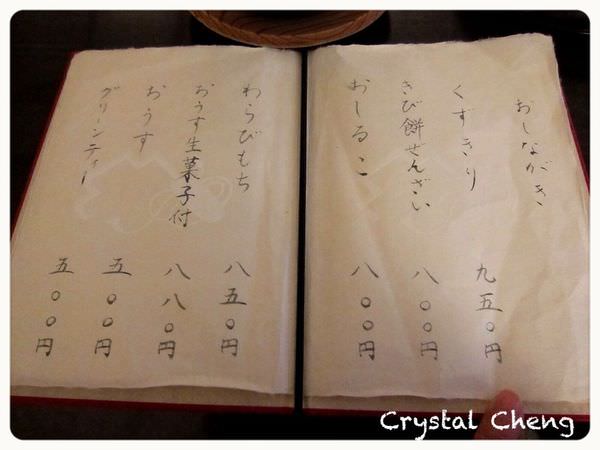 おしながき
くずきり 九五〇円
きび餅ぜんざい 八〇〇円
おしるこ 八〇〇円
わらびもち 八五〇円
おうす生菓子付 八八〇円
おうす 五〇〇円
グリーンティー 五〇〇円
Crystal Cheng